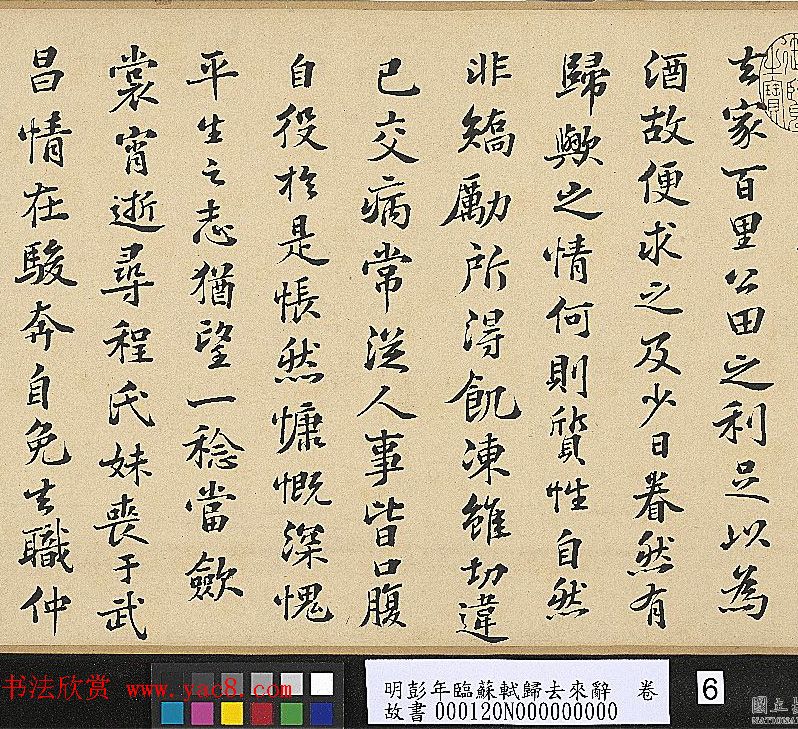 去家百里公田之利足以為
酒故便求之及少日眷然有
歸歟之情何則質性自然
非矯勵所得飢凍雖切違
已交病常從人事皆口腹
自役於是悵然慷慨深愧
平生之志猶望一稔當歛
裳宵逝尋程氏妹喪于武
昌情在駿奔自免去職仲
书法欣赏 www.yac8.com
明彭年臨蘇軾歸去來辭 卷
故書000120N000000000
6